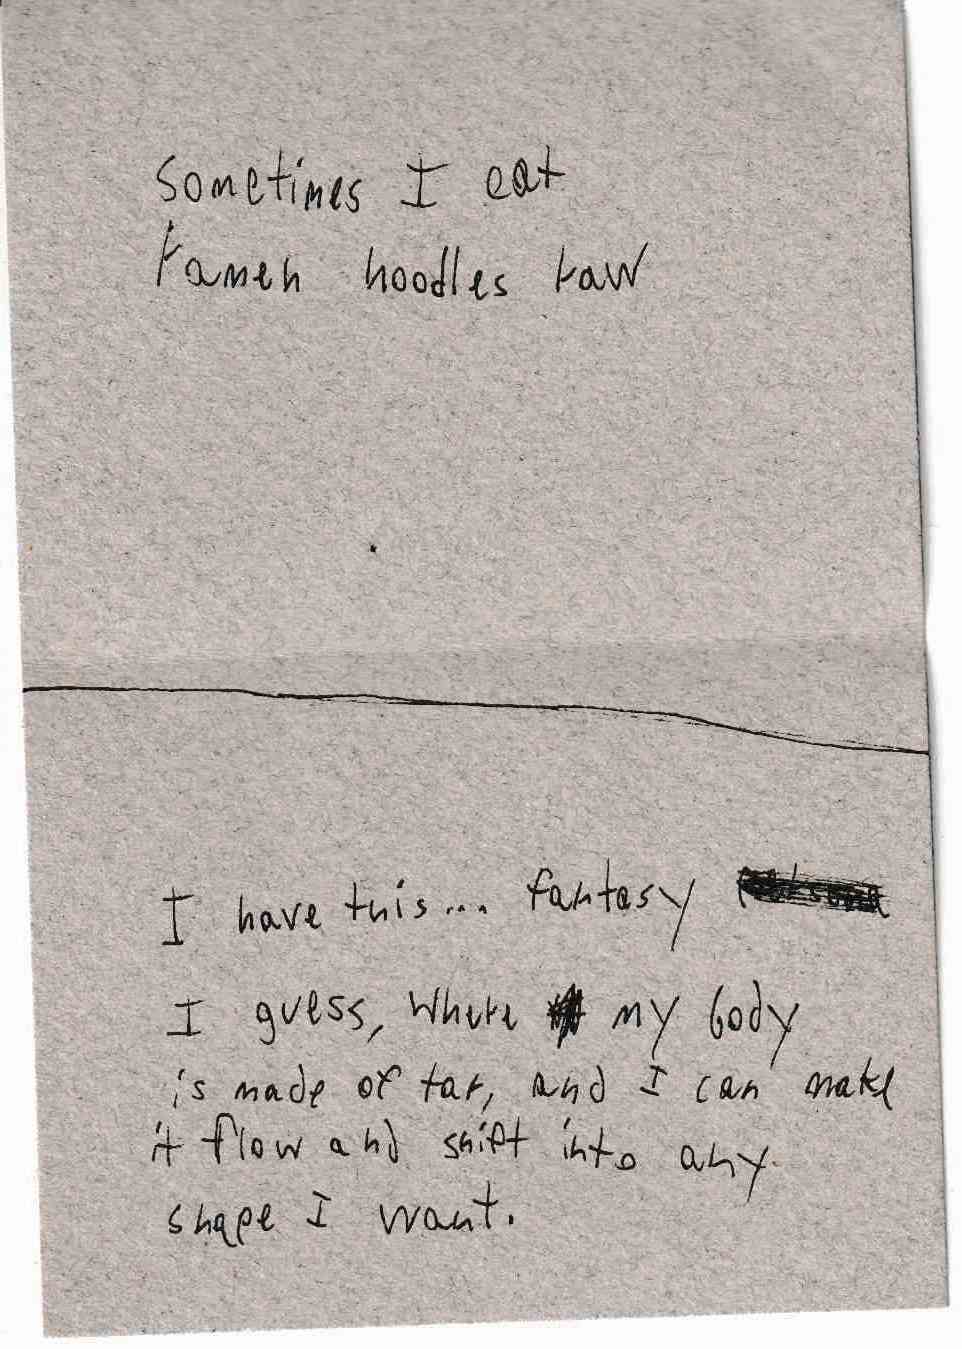 sometimes I eat
ramen noodles raw
I have this... fantasy
I guess, where my body
is made of tar, and I can make
it flow and shift into any
shape I want.